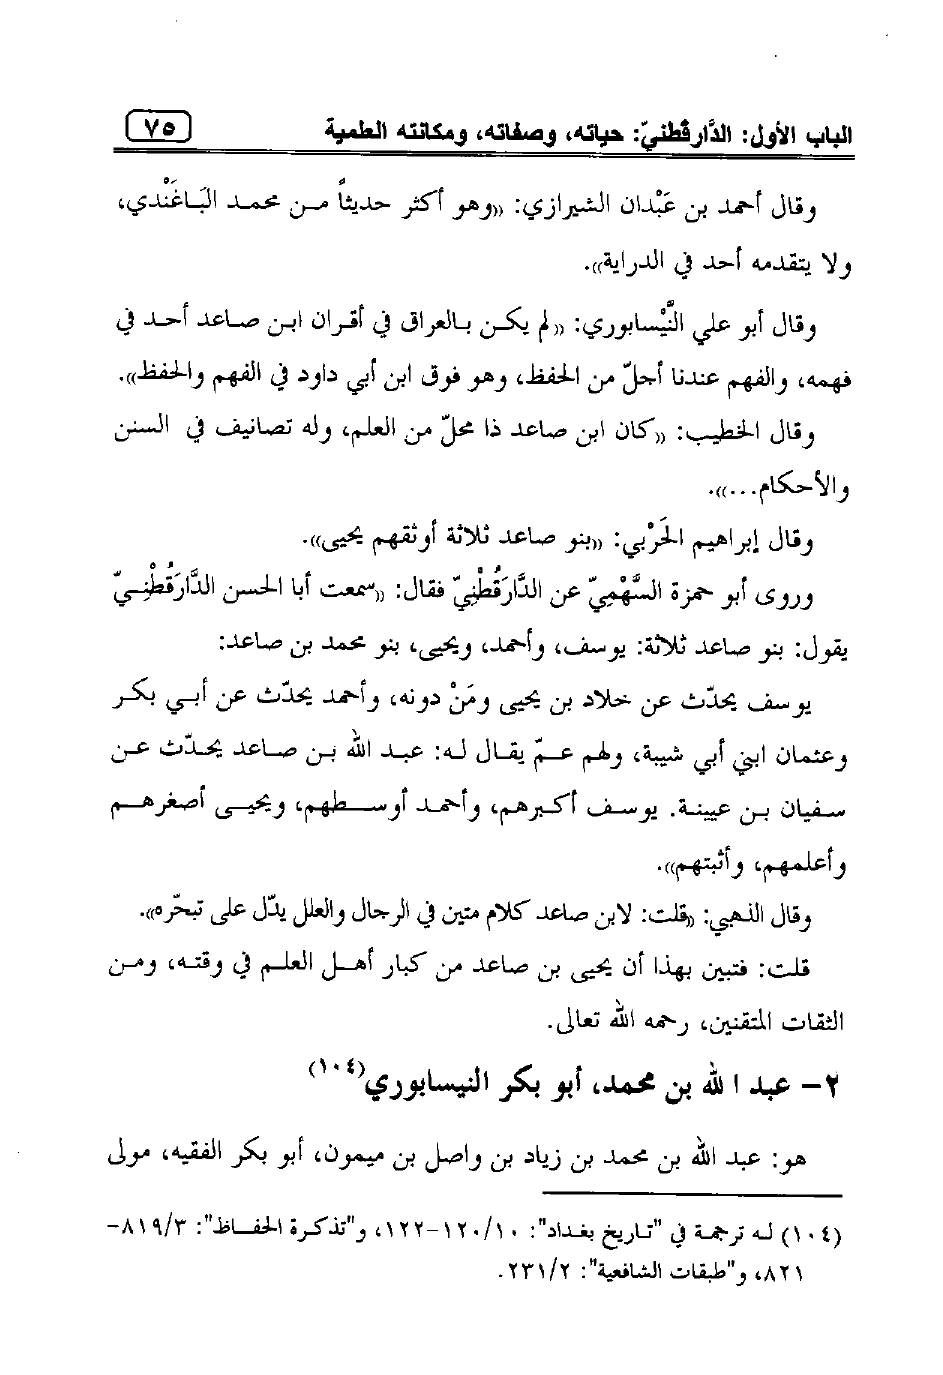 الباب الأول: الدَّارقُطنيّ: حياته، وصفاته، ومكانته العلمية
٧٥
وقال أحمد بن عَبْدان الشيرازي: «وهو أكثر حديثاً من محمد البَاغَنْدي،
ولا يتقدمه أحد في الدراية».
وقال أبو علي النَّيْسابوري: «لم يكن بالعراق في أقران ابن صاعد أحد في
فهمه، والفهم عندنا أجلّ من الحفظ، وهو فوق ابن أبي داود في الفهم والحفظ».
وقال الخطيب: «كان ابن صاعد ذا محلّ من العلم، وله تصانيف في السنن
والأحكام...».
وقال إبراهيم الحَرْبي: «بنو صاعد ثلاثة أوثقهم يحيى».
وروى أبو حمزة السَّهْمِيّ عن الدَّارَقُطْنِيّ فقال: «سمعت أبا الحسن الدَّارَقُطْنِيّ
يقول: بنو صاعد ثلاثة: يوسف، وأحمد، ويحيى، بنو محمد بن صاعد:
يوسف يحدّث عن خلاد بن يحيى ومَنْ دونه، وأحمد يحدّث عن أبي بكر
وعثمان ابني أبي شيبة، ولهم عمّ يقال له: عبد الله بن صاعد يحدّث عن
سفيان بن عيينة. يوسف أكبرهم، وأحمد أوسطهم، ويحيى أصغرهم
وأعلمهم، وأثبتهم».
وقال الذهبي: «قلت: لابن صاعد كلام متين في الرجال والعلل يدّل على تبحّره».
قلت: فتبين بهذا أن يحيى بن صاعد من كبار أهل العلم في وقته، ومن
الثقات المتقنين، رحمه الله تعالى.
٢- عبد الله بن محمد، أبو بكر النيسابوري(١٠٤)
هو: عبد الله بن محمد بن زياد بن واصل بن ميمون، أبو بكر الفقيه، مولى
(١٠٤) له ترجمة في "تاريخ بغداد": ١٢٠/١٠-١٢٢، و"تذكرة الحفاظ": ٨١٩/٣-
٨٢١، و"طبقات الشافعية": ٢٣١/٢.